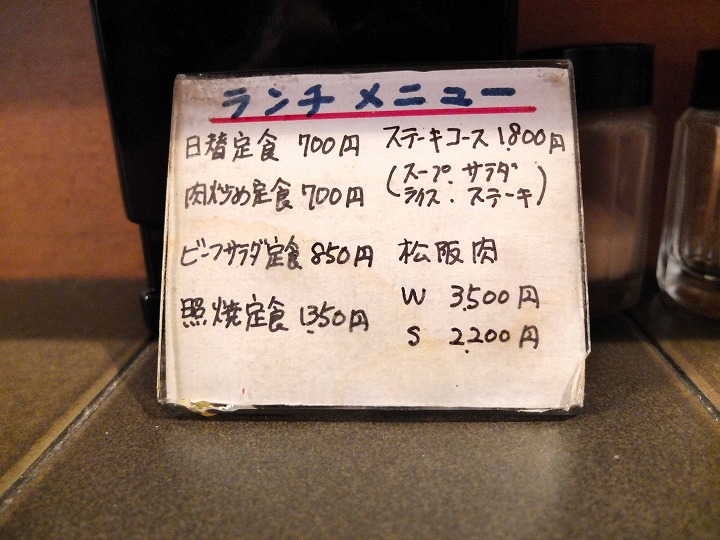 ランチメニュー
日替定食 700円
肉炒め定食 700円
ビーフサラダ定食 850円
照焼定食 1,350円
ステーキコース 1,800円
(スープ.サラダ
ライス.ステーキ)
松阪肉
W 3,500円
S 2,200円